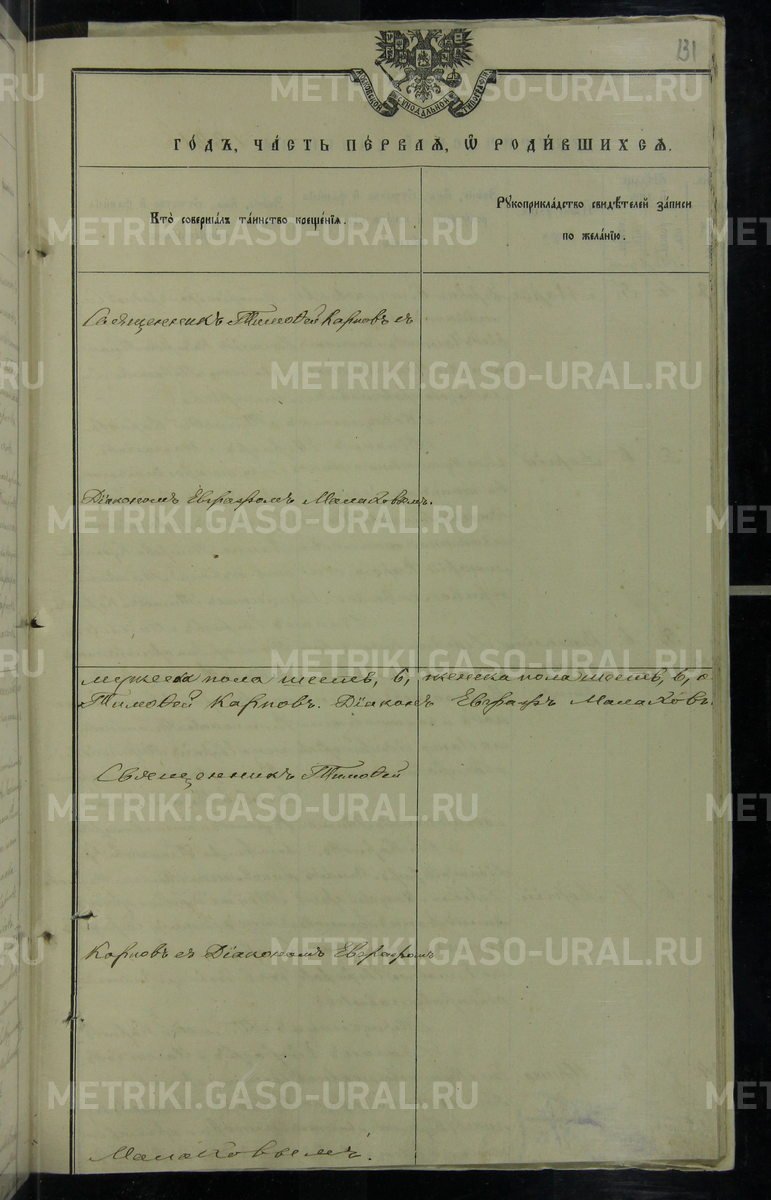 131
МОСКОВСКОЙ СѴНОДАЛЬНОЙ ТИПОГРАФІИ
ГО́ДЪ, ЧА́СТЬ ПЕ́РВАѦ, Ѡ҆ РОДИ́ВШИХСѦ.
Кто̀ соверша́лъ та́инство креще́нїѧ.
Рꙋкоприкла́дство свидѣ́телей за́писи
по жела́нїю.
Священникъ Тимоѳей Карповъ съ
Діакономъ Евграфомъ Малаховымъ.
мужеска пола шесть, 6, женска пола шесть, 6,
Тимоѳей Карповъ. Діаконъ Евграфъ Малаховъ.
Священникъ Тимоѳей
Карповъ съ Діакономъ Евграфомъ
Малаховымъ.
METRIKI.GASO-URAL.RU